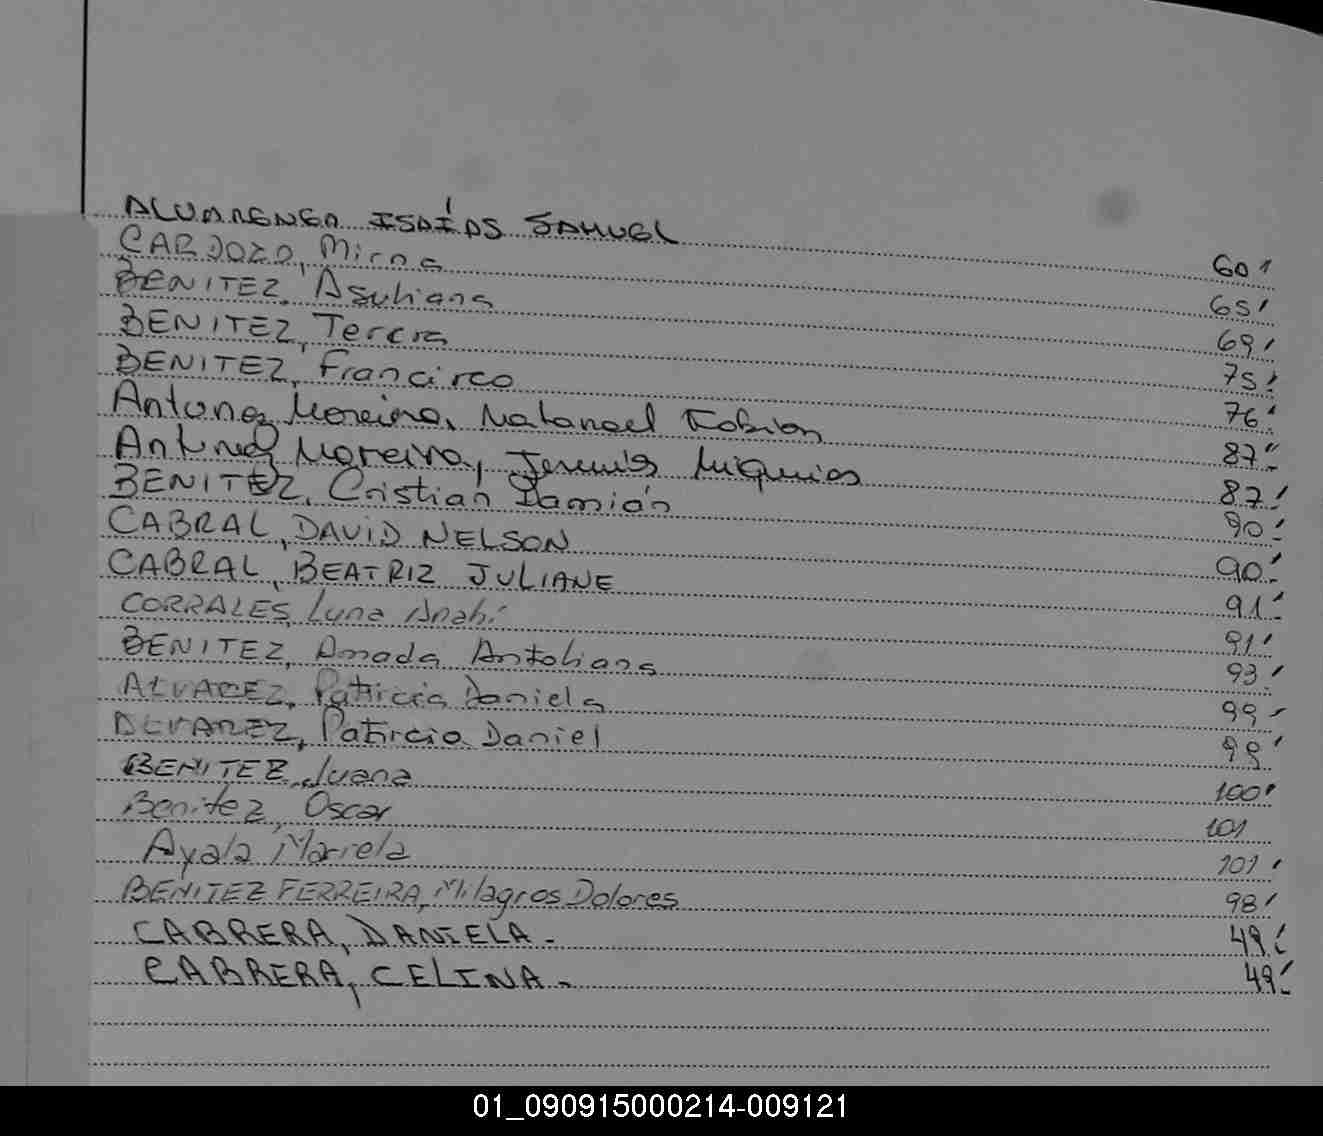 ALVARENGA ISAÍAS SAMUEL 60'
CARDOZO, Mirna 65'
BENITEZ, Asuliana 69'
BENITEZ, Tercia 75'
BENITEZ, Francisco 76'
Antunez Moreira, Natanael Fabian 87'
Antunez Moreira, Jeremías Miqueias 87'
BENITEZ, Cristian Damián 90'
CABRAL, DAVID NELSON 90'
CABRAL, BEATRIZ JULIANE 91'
CORRALES, Luna Anahí 91'
BENITEZ, Amada Antoliana 93'
ALVAREZ, Patricia Daniela 99'
ALVAREZ, Patircia Daniel 99'
BENITEZ, Juana 100'
Benitez, Oscar 101
Ayala Mariela 101'
BENITEZ FERREIRA, Milagros Dolores 98'
CABRERA, DANIELA.- 49'
CABRERA, CELINA.- 49'
01_090915000214-009121